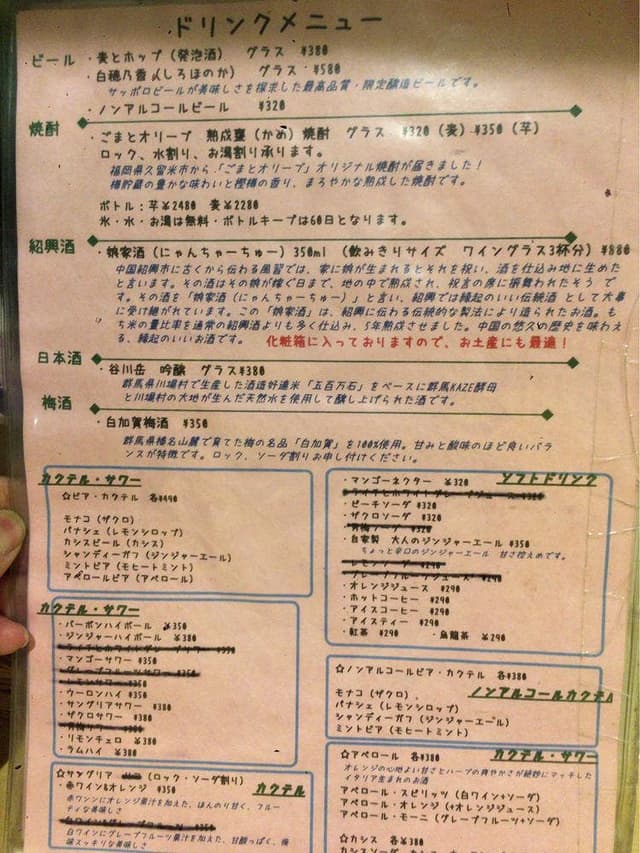 ドリンクメニュー
ビール ・麦とホップ（発泡酒） グラス ¥380
・白穂乃香（しろほのか） グラス ¥580
サッポロビールが美味しさを探求した最高品質・限定醸造ビールです。
・ノンアルコールビール ¥320
焼酎 ・ごまとオリーブ 熟成甕（かめ）焼酎 グラス ¥320（麦）¥350（芋）
ロック、水割り、お湯割り承ります。
福岡県久留米市から「ごまとオリーブ」オリジナル焼酎が届きました！
樽貯蔵の豊かな味わいと樫樽の香り、まろやかな熟成した焼酎です。
ボトル：芋¥2480 麦¥2280
氷・水・お湯は無料・ボトルキープは60日となります。
紹興酒 ・娘家酒（にゃんちゃーちゅー）350ml （飲みきりサイズ ワイングラス3杯分）¥880
中国紹興市に古くから伝わる風習では、家に娘が生まれるとそれを祝い、酒を仕込み地に生めた
と言います。その酒はその娘が嫁ぐ日まで、地の中で熟成され、祝言の席に振舞われたそう で
す。その酒を「娘家酒（にゃんちゃーちゅー）」と言い、紹興では縁起のいい伝統酒 として大事
に受け継がれています。この「娘家酒」は、紹興に伝わる伝統的な製法により造られたお酒。も
ち米の量比率を通常の紹興酒よりも多く仕込み、5年熟成させました。中国の悠久の歴史を味わえ
る、縁起のいいお酒です。 化粧箱に入っておりますので、お土産にも最適！
日本酒 ・谷川岳 吟醸 グラス¥380
群馬県川場村で生産した酒造好適米「五百万石」をベースに群馬KAZE酵母
と川場村の大地が生んだ天然水を使用して醸し上げられた酒です。
梅酒 ・白加賀梅酒 ¥350
群馬県榛名山麓で育てた梅の名品「白加賀」を100%使用。甘みと酸味のほど良いバラ
ンスが特徴です。ロック、ソーダ割りお申し付けください。
カクテル・サワー
☆ビア・カクテル 各¥490
モナコ（ザクロ）
パナシェ（レモンシロップ）
カシスビール（カシス）
シャンディーガフ（ジンジャーエール）
ミントビア（モヒートミント）
アペロールビア（アペロール）
カクテル・サワー
・バーボンハイボール ¥350
・ジンジャーハイボール ¥380
・マンゴーサワー ¥350
・グレープフルーツサワー ¥350
・レモンサワー ¥350
・ウーロンハイ ¥350
・サングリアサワー ¥380
・ザクロサワー ¥380
・青梅サワー ¥380
・リモンチェロ ¥380
・ラムハイ ¥380
☆サングリア （ロック・ソーダ割り） カクテル
・赤ワイン&オレンジ ¥350
赤ワンンにオレンジ果汁を加えた、ほんのり甘く、フルー
ティな美味しさ
白ワインにグレープフルーツ果汁を加えた、甘酸っぱく、後
味スッキリな美味しさ
・マンゴーネクター ¥320 ソフトドリンク
・ピーチソーダ ¥320
・ザクロソーダ ¥320
・青梅ソーダ ¥320
・自家製 大人のジンジャーエール ¥350
ちょっと辛口のジンジャーエール 甘さ控えめです。
・レモンソーダ ¥290
・グレープフルーツジュース ¥290
・オレンジジュース ¥290
・ホットコーヒー ¥290
・アイスコーヒー ¥290
・アイスティー ¥290
・紅茶 ¥290 ・烏龍茶 ¥290
☆ノンアルコールビア・カクテル 各¥380
モナコ（ザクロ）、 ノンアルコールカクテル
パナシェ（レモンシロップ）
シャンディーガフ（ジンジャーエール）
ミントビア（モヒートミント）
☆アペロール 各¥380 カクテル・サワー
オレンジの心地よい甘さとハーブの爽やかさが絶妙にマッチした
イタリア生まれのお酒
アペロール・スピリッツ（白ワイン+ソーダ）
アペロール・オレンジ（+オレンジジュース）
アペロール・モーニ（グレープフルーツ+ソーダ）
☆カシス 各¥380